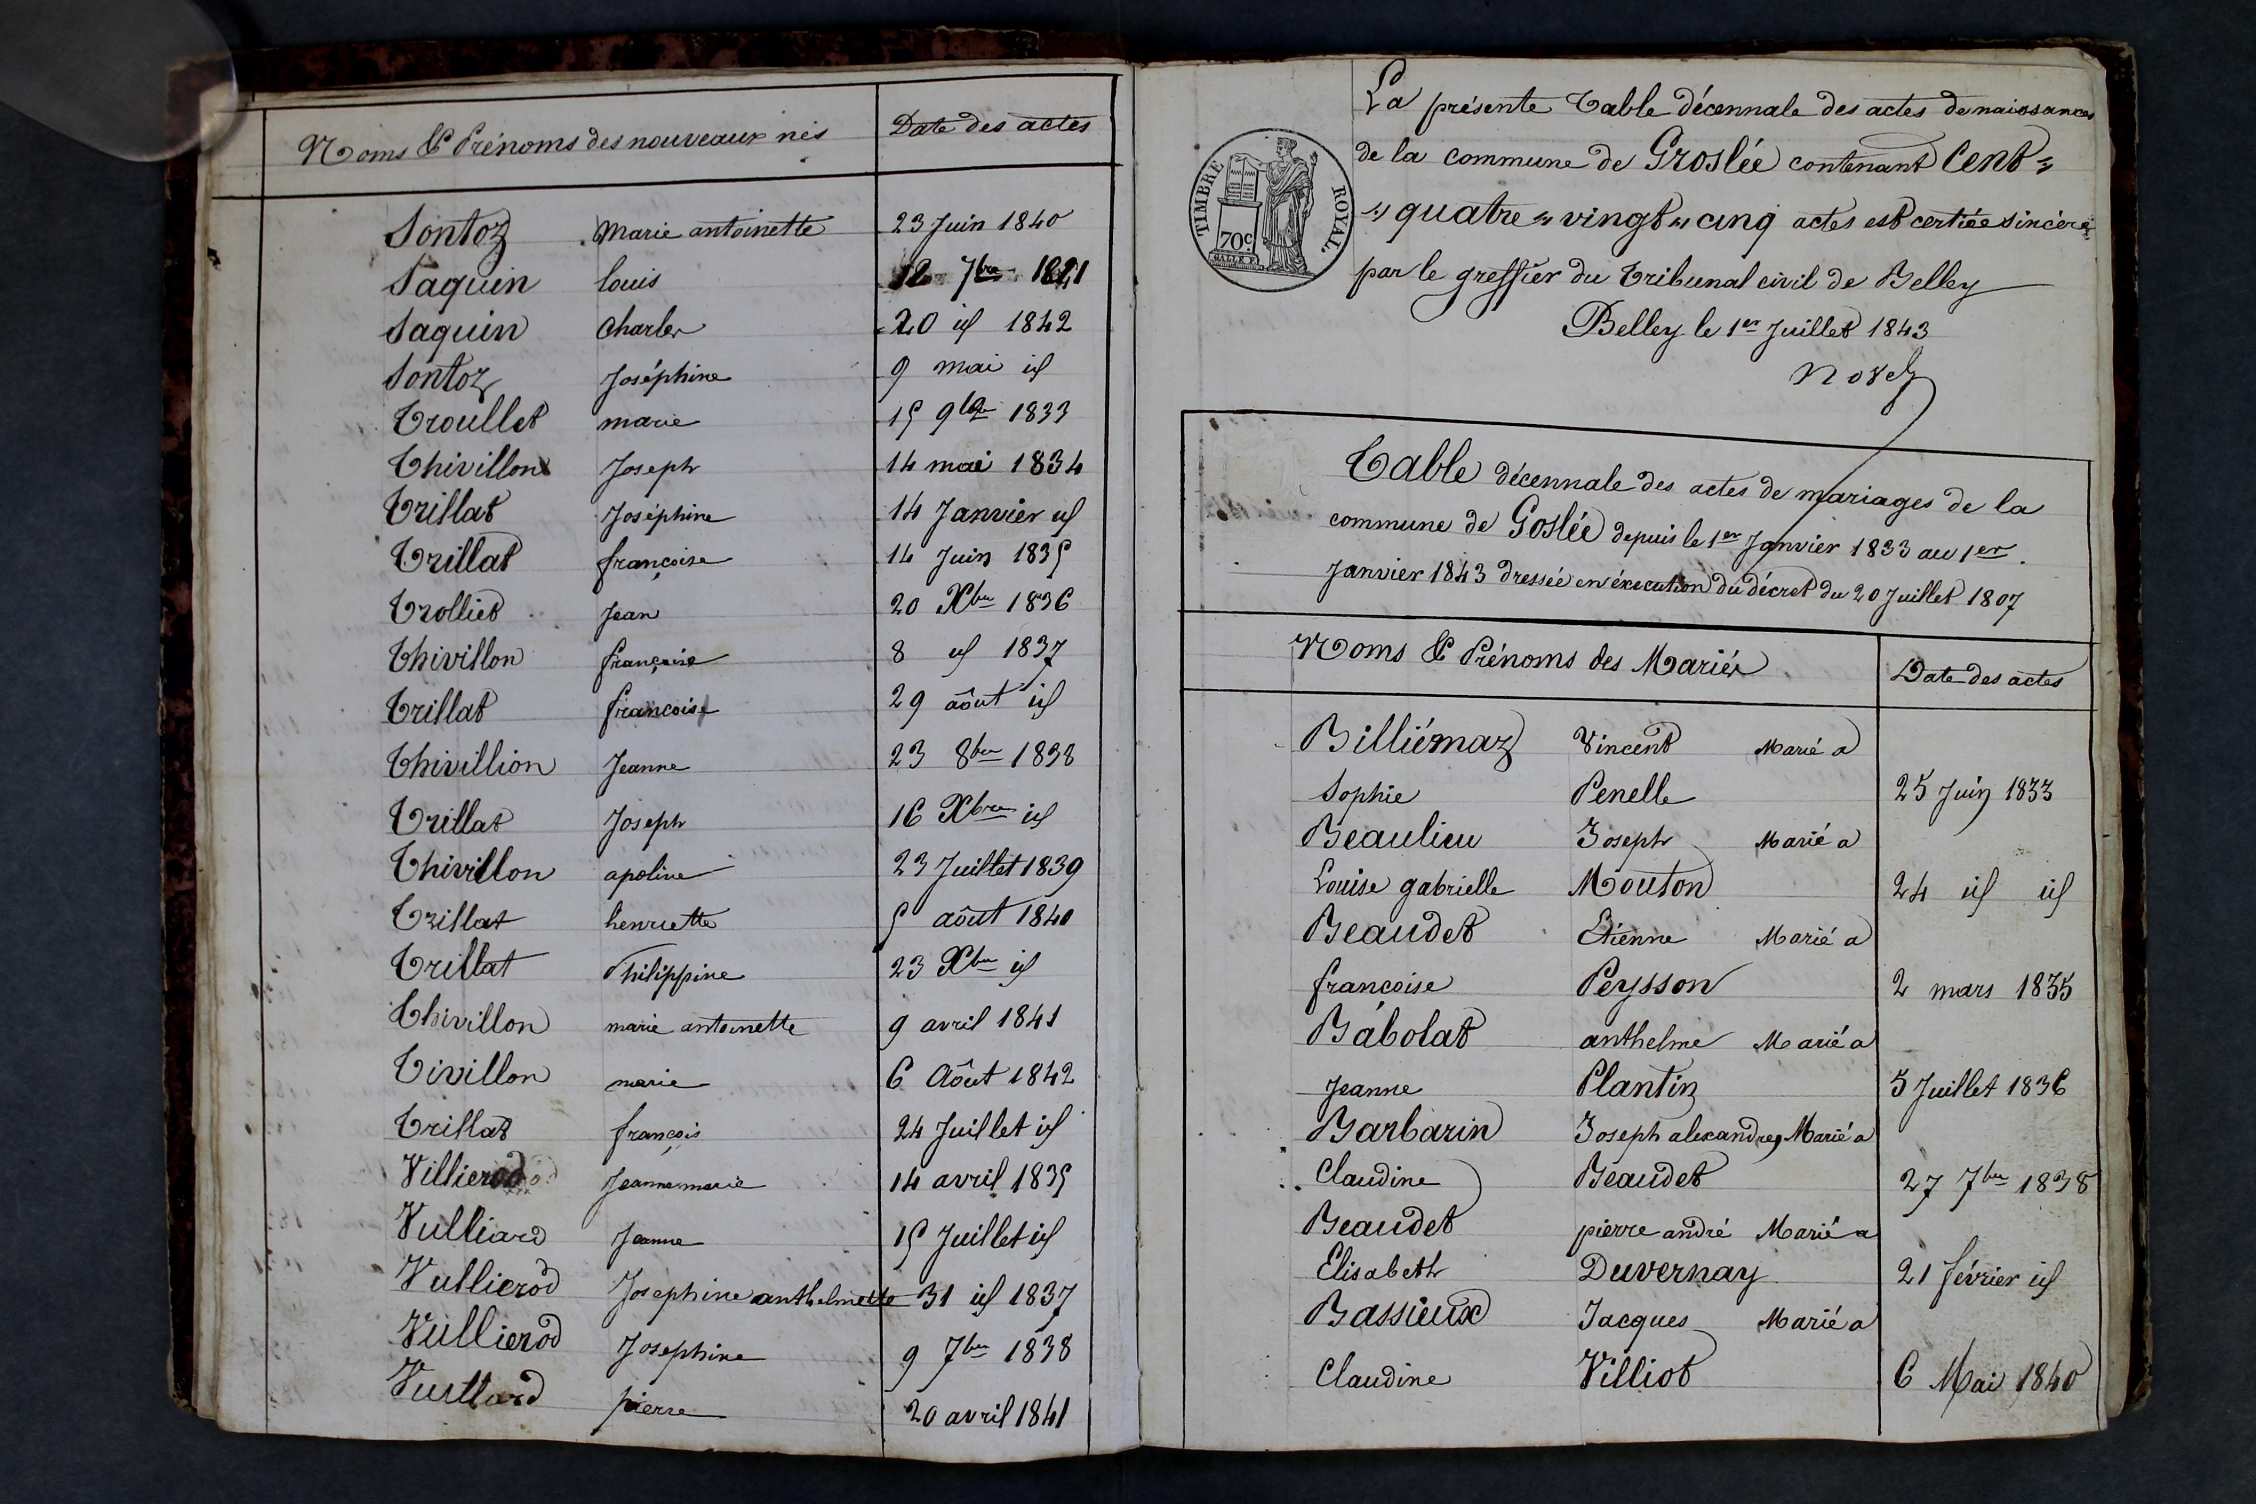 Noms & Prénoms des nouveaux nés Date des actes
Sontoz Marie antoinette 23 Juin 1840
Saquin louis 12 7bre 1841
Saquin Charles 20 id 1842
Sontoz Joséphine 9 mai id
Troullet marie 15 9bre 1833
Thivillon Joseph 14 mai 1834
Trillat Joséphine 14 Janvier id
Trillat françoise 14 Juin 1835
Trolliet Jean 20 Xbre 1836
Thivillon françoise 8 id 1837
Trillat françoise 29 aôut id
Thivillion Jeanne 23 8bre 1838
Trillat Joseph 16 Xbre id
Thivillon apoline 23 Juillet 1839
Trillat henriette 5 aôut 1840
Trillat Philippine 23 Xbre id
Thivillon marie antoinette 9 avril 1841
Tivillon marie 6 Aôut 1842
Trillat françois 24 Juillet id
Villierod Jeanne marie 14 avril 1835
Vulliard Jeanne 15 Juillet id
Vullierod Josephine anthelmette 31 id 1837
Vullierod Josephine 9 7bre 1838
Vuillard pierre 20 avril 1841
La présente Table décennale des actes de naissances
de la commune de Groslée contenant Cent
quatre vingt cinq actes est certiée sincère
par le greffier du Tribunal civil de Belley
Belley le 1er Juillet 1843
TIMBRE ROYAL.
70c.
Table décennale des actes de mariages de la
commune de Goslée depuis le 1er Janvier 1833 au 1er
Janvier 1843 dressée en éxecution du décret du 20 Juillet 1807
Noms & Prénoms des Mariés Date des actes
Billiémaz Vincent Marié a
Sophie Penelle 25 Juin 1833
Beaulieu Joseph Marié a
Louise gabrielle Mouton 24 id id
Beaudet Etienne Marié a
françoise Peysson 2 mars 1835
Bábolat anthelme Marié a
Jeanne Plantin 5 Juillet 1836
Barbarin Joseph alexandre Marié a
Claudine Beaudet 27 7bre 1838
Beaudet pierre andré Marié a
Elisabeth Duvernay 21 février id
Bassieux Jacques Marié a
Claudine Villiot 6 Mai 1840